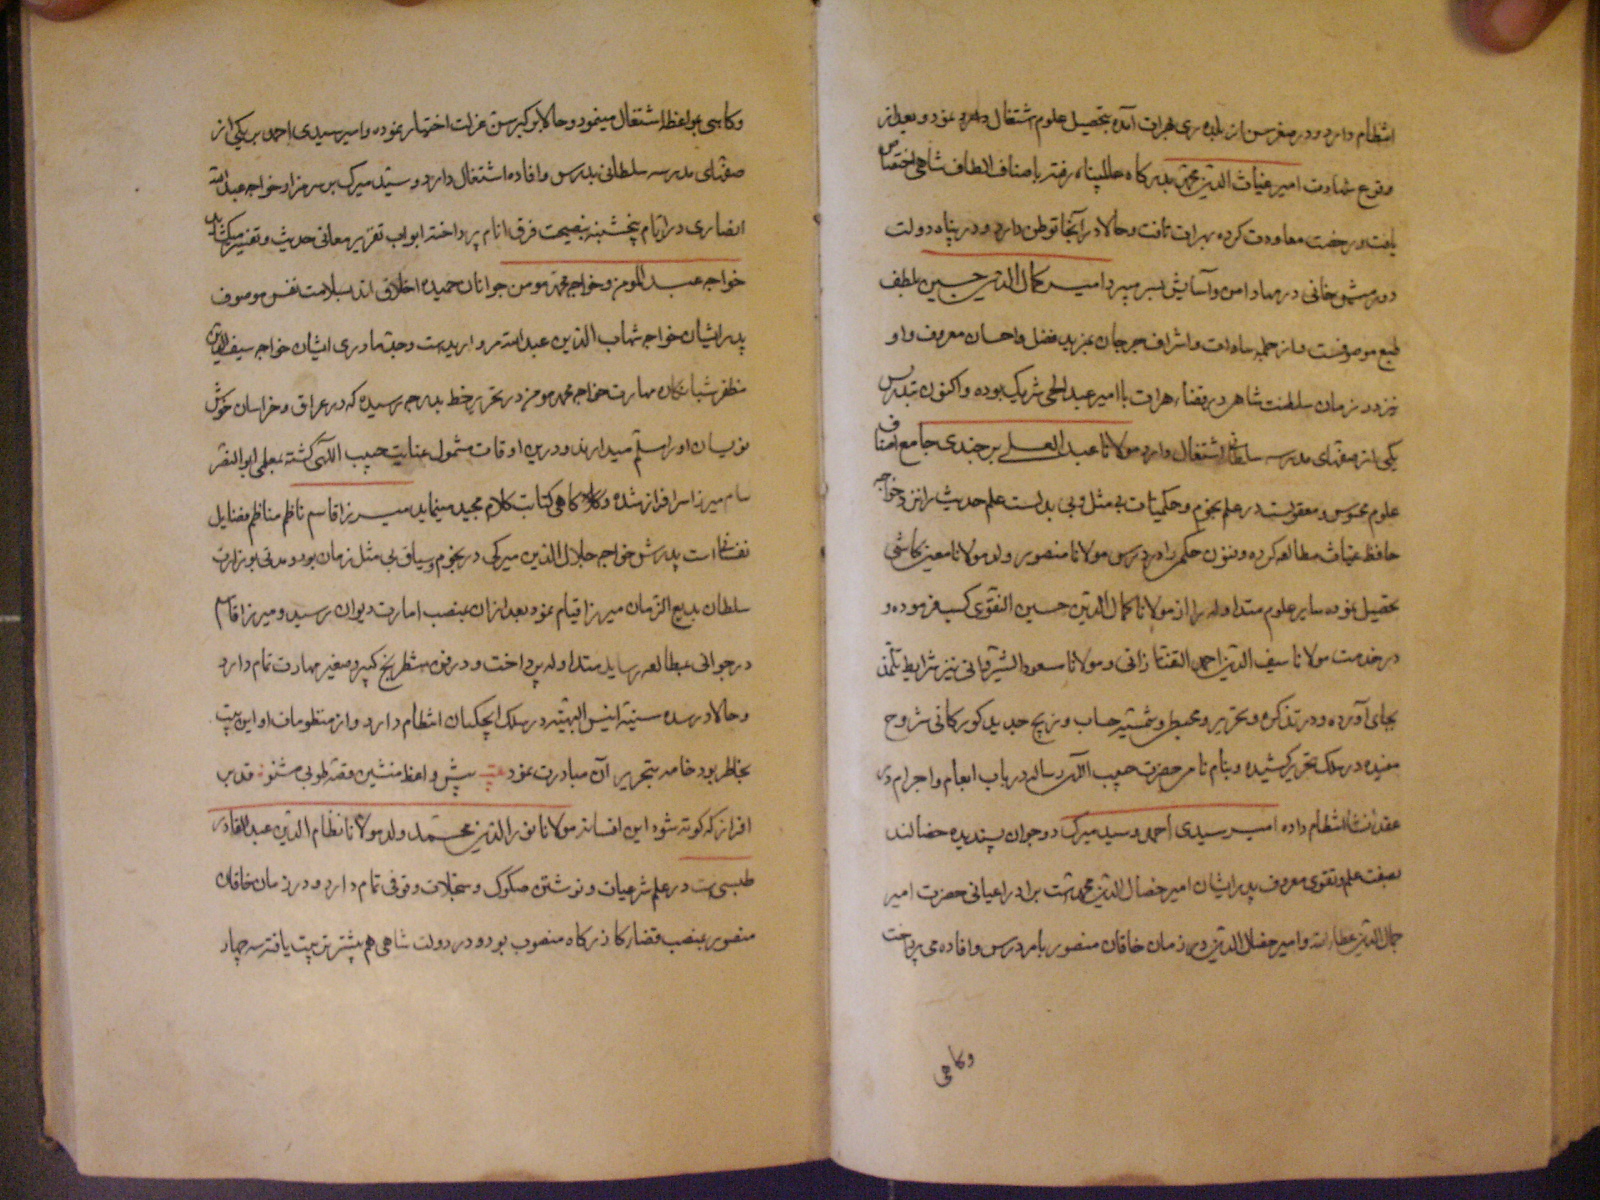 انتظام دارد و در صغر سن از بلده ری بهرات آمده بتحصیل علوم اشتغال نمود و بعد از
وقوع شهادت امیر غیاث الدین محمد بدرگاه عالمپناه رفته باصناف الطاف شاهی اختصاص
یافت و رخصت معاودت کرده بهرات شتافت و حالا در آنجا توطن دارد و در پناه دولت
دورمش خانی در مهاد امن و آسایش بسر میبرد امیر کمال الدین حسین بلطف
طبع موصوفست و از جمله سادات و اشراف جرجان بمزید فضل و احسان معروف و او
نیز در زمان سلطنت شاهی در قضاء هرات با امیر عبدالحی شریک بوده و اکنون بتدریس
یکی از صفهای مدرسه سلطانی اشتغال دارد مولانا عبد العلی برجندی جامع اصناف
علوم محسوس و معقولست در علم نجوم و حکمیات بی مثل و بی بدلست علم حدیث را نزد خواجه
حافظ غیاث مطالعه کرده و فنون حکمی را در درس مولانا منصور ولد مولانا معین کاشی
تحصیل نموده سایر علوم متداوله را از مولانا کمال الدین حسین القنوی کسب فرموده و
در خدمت مولانا سیف الدین احمد التفتازانی و مولانا مسعود الشیروانی نیز شرایط تلمذ
بجای آورده و در تذکره و تحریر و مجسطی و شمسیه حساب و زیج جدید کورکانی شروح
مفیده در سلک تحریر کشیده و بنام نامی حضرت حبیب اللهی رساله در باب ابعاد و اجرام در
عقد انشا انتظام داده امیر سیدی احمد و سید میرک دو جوان پسندیده خصالند
بصفت علم و تقوی معروف پدر ایشان امیر جلال الدین محمدست برادر اعیانی حضرت امیر
جمال الدین عطاء الله و امیر جلال الدین در زمان خاقان منصور بامر درس و افاده می پرداخت
وکاهی
وکاهی بوعظ اشتغال مینمود و حالا بو کبر سن عزلت اختیار نموده و امیر سیدی احمد بر یکی از
صفهای مدرسه سلطانی بدرس و افاده اشتغال دارد و سید میرک بر سر مزار خواجه عبدالله
انصاری در ایام پنجشنبه بنصیحت فرق انام پرداخته ابواب تقریر معانی حدیث و تفسیر میکشاید
خواجه عبد المومن و خواجه محمد مومن جوانان حمیده اخلاق اند بسلامت نفس موصوف
پدر ایشان خواجه شهاب الدین عبدالله مروارید ست و جد مادری ایشان خواجه سیف الدین
مظفر شبانکاره مهارت خواجه محمد مومن در تحریر خط بدرجه رسیده که در عراق و خراسان خوش
نویسان او را مسلم میدارند و درین اوقات مشمول عنایت حبیب اللهی کشته بمعلمی ابوالنصر
سام میرزا سرافراز شده و کاه کاهی کتابت کلام مجید مینماید میرزا قاسم ناظم مناظم فضایل
نفسانی است پدرش خواجه جلال الدین میرکی در نجوم و سیاق بی مثل زمان بود و مدتی بوزارت
سلطان بدیع الزمان میرزا قیام نمود بعد از ان بمنصب امارت دیوان رسید و میرزا قاسم
در جوانی بمطالعه رسایل متداوله پرداخت و در فن شطرنج کبیر و صغیر مهارت تمام دارد
و حالا در سده سنیه انیس البهیه در سلک ایچکیان انتظام دارد و از منظومات او این بیت
بخاطر بود خامه بتحریر آن مبادرت نمود بیت پیش واعظ منشین قصه طوبی مشنو قد بر
افراز که کوته شود این افسانه مولانا نور الدین محمد ولد مولانا نظام الدین عبدالقادر
طبسی ست در علم شرعیات و نوشتن صکوک و سجلات وقوفی تمام دارد و در زمان خاقان
منصور بمنصب قضا کاذرکاه منصوب بود و در دولت شاهی هم پیشتر تربیت یافته سه چهار